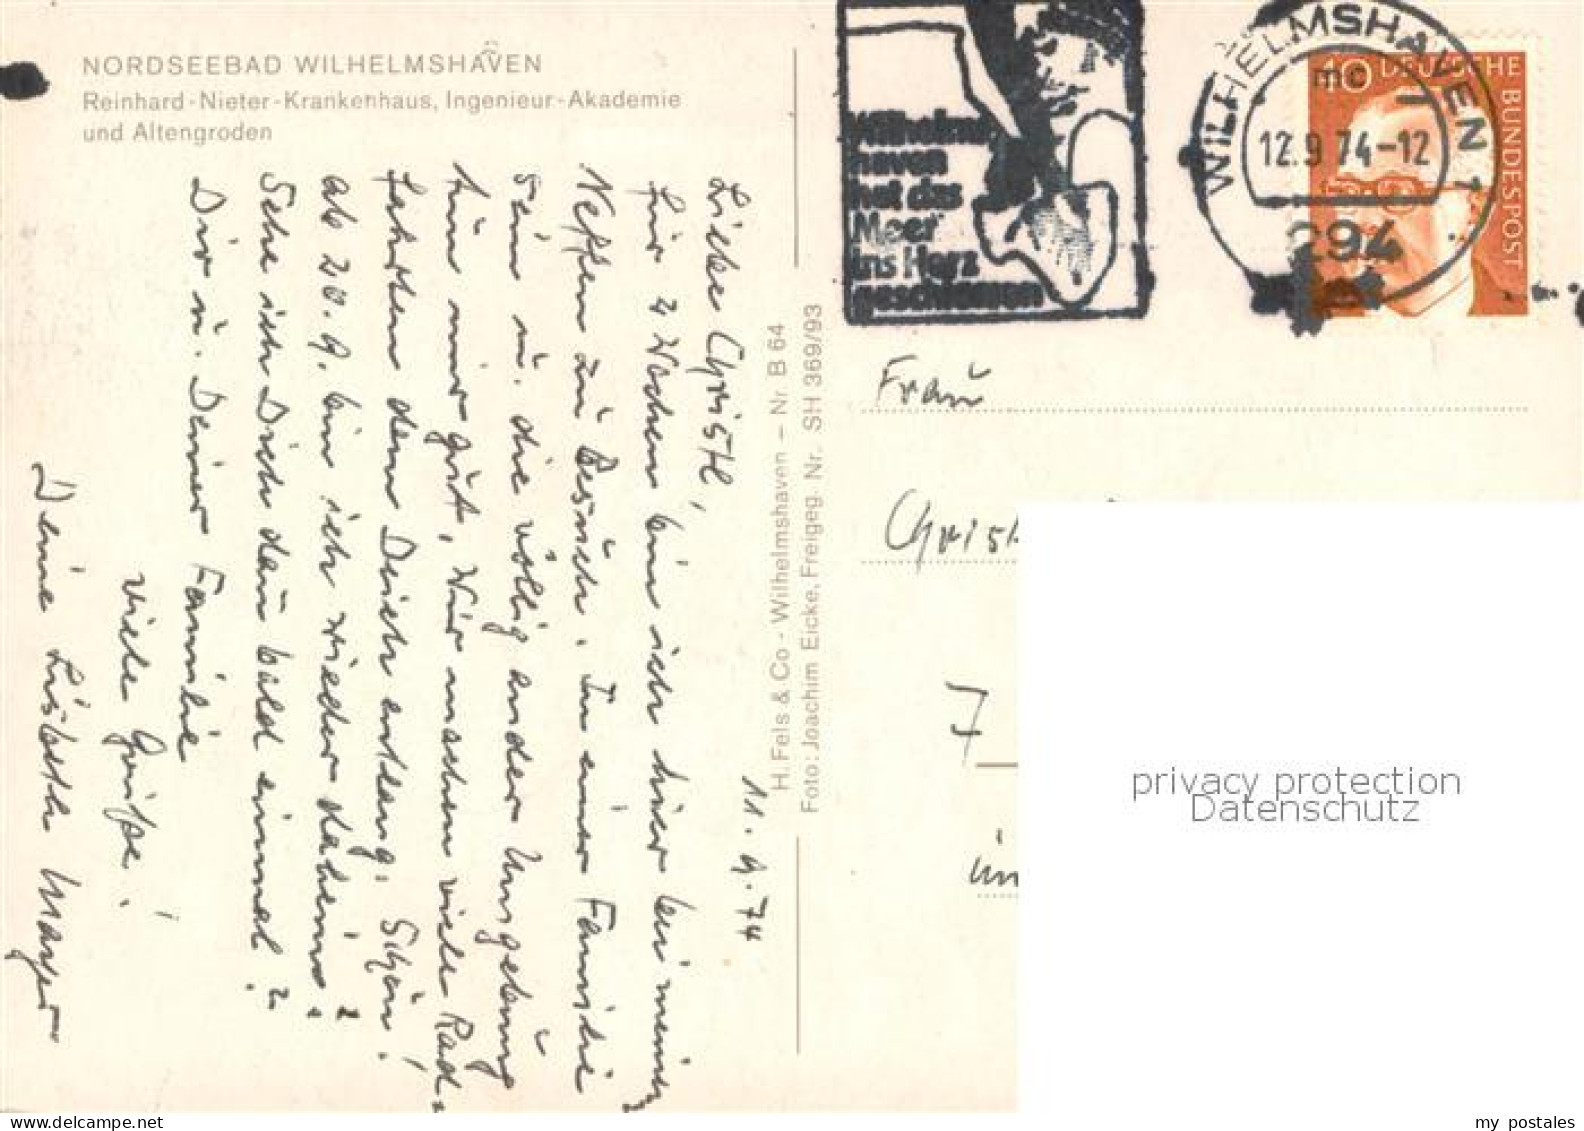 NORDSEEBAD WILHELMSHAVEN
Reinhard-Nieter-Krankenhaus, Ingenieur-Akademie
und Altengroden
11.9.74
Liebe Christl,
für 4 Wochen bin ich hier bei meinem
Neffen zu Besuch. In einer Familie
sein u. die völlig andere Umgebung
tun mir gut. Wir machen viele Rad-
fahrten dem Deich entlang. Schön!
ab 20.9. bin ich wieder daheim.
Sehe ich Dich dann bald einmal?
Dir u. Deiner Familie
viele Grüße!
Deine Lisbeth Mayer
H. Fels & Co - Wilhelmshaven - Nr. B 64
Foto: Joachim Eicke, Freigeg. Nr. SH 369/93
Wilhelms-
haven
hat das
Meer
ins Herz
geschlossen
WILHELMSHAVEN 1
mc
12.9.74-12
294
40 DEUTSCHE BUNDESPOST
Frau
Christ
7
privacy protection
Datenschutz
my postales